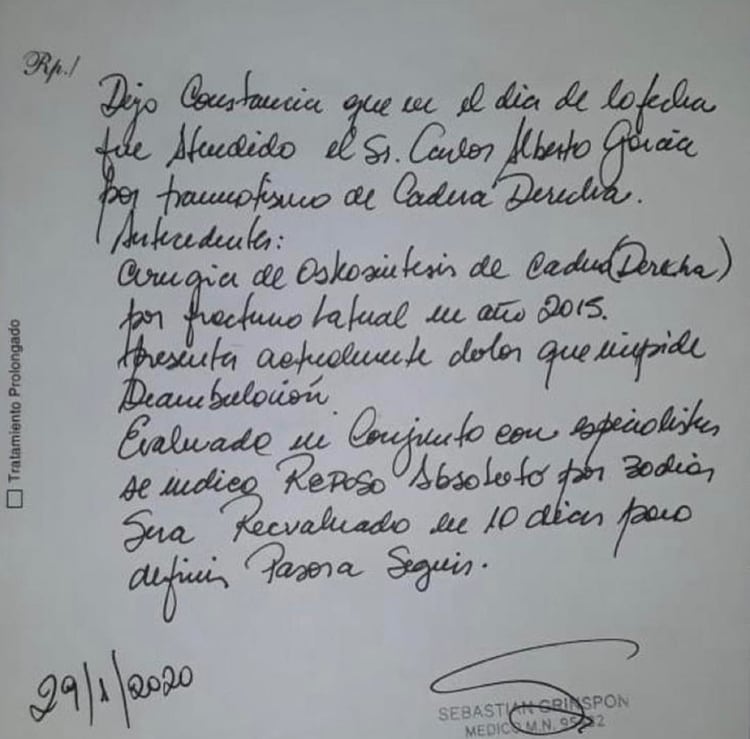 Rp./
Dejo Constancia que en el dia de la fecha
fue Atendido el Sr. Carlos Alberto Garcia
por traumatismo de Cadera Derecha.
Antecedentes:
Cirugia de Osteosintesis de Cadera (Derecha)
por fractura lateral en año 2015.
Presenta actualmente dolor que impide
Deambulación
Evaluado en Conjunto con especialistas
se indica Reposo Absoluto por 30 dias
Sera Reevaluado en 10 dias para
definir Pasos a Seguir.
29/1/2020
SEBASTIAN GRINSPON
MEDICO M.N.
Tratamiento Prolongado